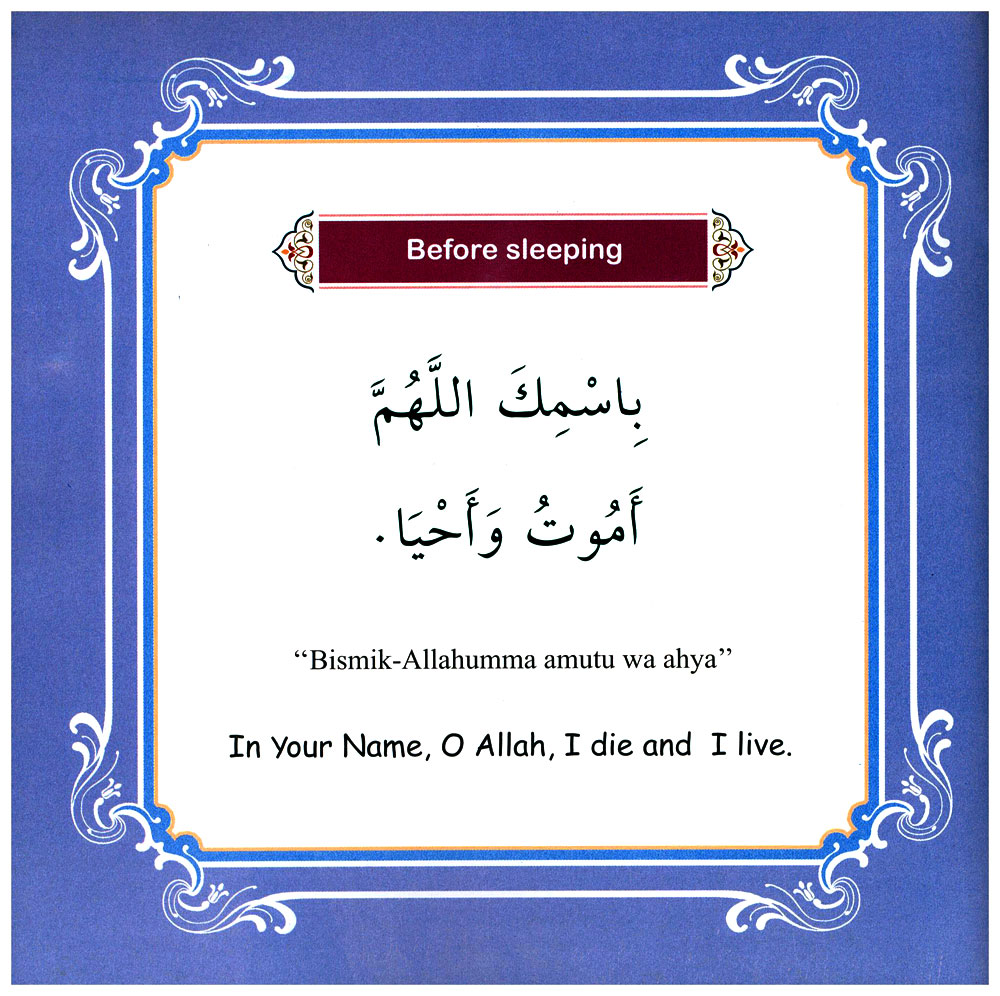 Before sleeping
بِاسْمِكَ اللَّهُمَّ
أَمُوتُ وَأَحْيَا.
“Bismik-Allahumma amutu wa ahya”
In Your Name, O Allah, I die and I live.